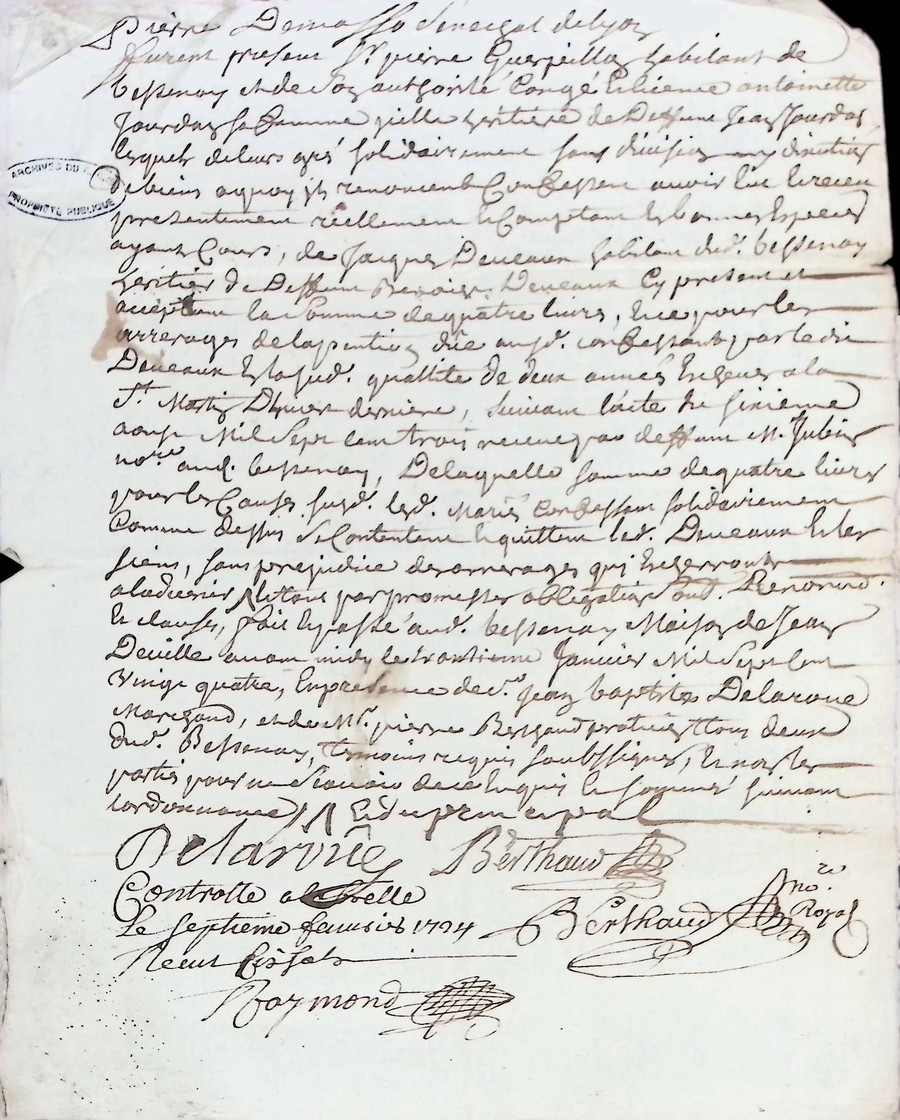 Pierre Demasso Senechal de lyon
furent presens Sr. pierre Guerpillon habitant de
bessenay et de son authorité Congé & licence antoinette
Jourdan sa femme fille heritiere de Deffunt Jean Jourdan
lesquels de leurs gré solidairement sans division ny
de biens a quoy ils renoncent Confessent avoir Eu & receu
presentement réellement & Comptant En bonnes Especes
ayant Cours, de Jacques Deveaux habitant dud. bessenay
heritier de Deffunt Benoist Deveaux Cy present et
acceptant la Somme de quatre livres, & ce pour les
arrerages de la pention düe aux d. confessants par le dit
Deveaux En la sud. quallité de deux années Escheues a la
St. Martin Dhiver derniere, suivant l'acte du sixieme
aoust Mil Sept Cent trois receu par deffunt Me. Jullien
nore. aud. bessenay, De laquelle somme de quatre livres
pour les Causes susd. lesd. Mariés Confessent solidairement
Comme dessus se Contentent & quittent led. Deveaux & les
siens, sans prejudice des arrerages qui Escherront
a ladvenir /\ Ainsi par promesses obligations Soub. Renonciat.
Et clauses, fait & passé aud. bessenay Maison de Jean
Deville avant midy le trantieme Janvier Mil Sept Cent
vingt quatre, En presence de sr. Jean baptiste Delaroue
Marchand, et de Mr. pierre Berthaud praticien tous deux
dud. Bessenay, temoins requis soubssignés, & non les
partis pour ne Scavoir de ce Enquis & sommés suivant
lordonnance /\ & du principal
Delaroüe Berthaud
Controllé a lArbresle
Le Septieme fevrier 1724 Berthaud nore. Royal
Receu six sols
Raymond
ARCHIVES DU
PROPRIÉTÉ PUBLIQUE